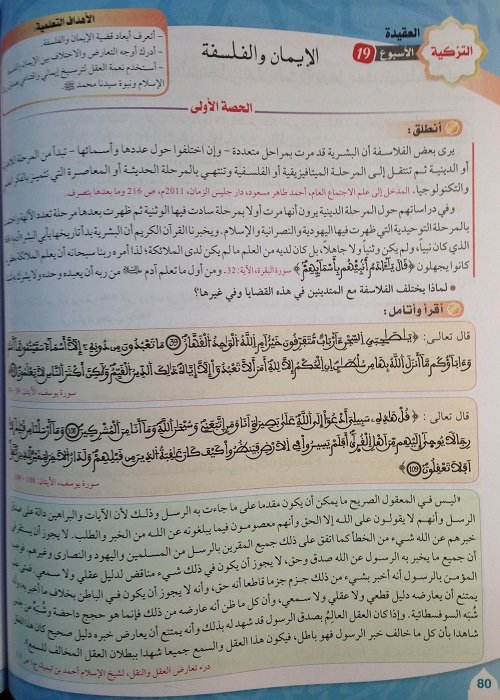 التزكية
العقيدة
الأسبوع 19
الإيمان والفلسفة
الأهداف التعلمية:
- أتعرف أبعاد قضية الإيمان والفلسفة.
- أدرك أوجه التعارض والاختلاف بين الإيمان والفلسفة
- أستخدم نعمة العقل لترسيخ إيماني واقتناعي
الإسلام ونبوة سيدنا محمد ﷺ
الحصة الأولى
أنطلق:
يرى بعض الفلاسفة أن البشرية قد مرت بمراحل متعددة - وإن اختلفوا حول عددها وأسمائها - تبدأ من المرحلة
أو الدينية ثم تنتقل إلى المرحلة الميتافيزيقية أو الفلسفية وتنتهي بالمرحلة الحديثة أو المعاصرة التي تتميز بالفكر
والتكنولوجيا. المدخل إلى علم الاجتماع العام، أحمد طاهر مسعود، دار جليس الزمان، 2011م، ص 216 وما بعدها بتصرف
وفي دراساتهم حول المرحلة الدينية يرون أنها مرت أولا بمرحلة سادت فيها الوثنية ثم ظهرت بعدها مرحلة تعدد الآلهة
بالمرحلة التوحيدية التي ظهرت فيها اليهودية والنصرانية والإسلام. ويخبرنا القرآن الكريم أن البشرية بدأ تاريخها بأبي البشر
الذي كان نبياً، ولم يكن وثنياً ولا جاهلاً، بل كان لديه من العلم ما لم يكن لدى الملائكة؛ لذا أمره ربنا سبحانه أن يعلم الملائكة
كانوا يجهلون ﴿قَالَ يَـٰٓـَٔادَمُ أَنۢبِئْهُم بِأَسْمَآئِهِمْ﴾ سورة البقرة، الآية: 32. ومن أول ما تعلم آدم من ربه أن يعبده وحده ولا يشرك
• لماذا يختلف الفلاسفة مع المتدينين في هذه القضايا وفي غيرها؟
أقرأ وأتأمل:
قال تعالى: ﴿يَـٰصَـٰحِبَىِ ٱلسِّجْنِ ءَآرْبَابٌ مُّتَفَرِّقُونَ خَيْرٌ أَمِ ٱللَّهُ ٱلْوَٰحِدُ ٱلْقَهَّارُ 39 مَا تَعْبُدُونَ مِن دُونِهِۦٓ إِلَّآ أَسْمَآءً سَمَّيْتُمُوهَآ أَنتُمْ
وَءَابَآؤُكُم مَّآ أَنزَلَ ٱللَّهُ بِهَا مِن سُلْطَـٰنٍ إِنِ ٱلْحُكْمُ إِلَّا لِلَّهِ أَمَرَ أَلَّا تَعْبُدُوٓا۟ إِلَّآ إِيَّاهُ ذَٰلِكَ ٱلدِّينُ ٱلْقَيِّمُ وَلَـٰكِنَّ أَكْثَرَ ٱلنَّاسِ لَا يَعْلَمُونَ
سورة يوسف، الآيتان: 39 -
قال تعالى: ﴿قُلْ هَـٰذِهِۦ سَبِيلِىٓ أَدْعُوٓا۟ إِلَى ٱللَّهِ عَلَىٰ بَصِيرَةٍ أَنَا۠ وَمَنِ ٱتَّبَعَنِى وَسُبْحَـٰنَ ٱللَّهِ وَمَآ أَنَا۠ مِنَ ٱلْمُشْرِكِينَ 108 وَمَآ أَرْسَلْنَا مِن قَبْلِكَ
رِجَالًا يُوحَىٰٓ إِلَيْهِم مِّنْ أَهْلِ ٱلْقُرَىٰٓ أَفَلَمْ يَسِيرُوا۟ فِى ٱلْأَرْضِ فَيَنظُرُوا۟ كَيْفَ كَانَ عَـٰقِبَةُ ٱلَّذِينَ مِن قَبْلِهِمْ وَلَدَارُ ٱلْـَٔاخِرَةِ خَيْرٌ لِّلَّذِينَ
أَفَلَا تَعْقِلُونَ 109﴾
سورة يوسف، الآيتان: 108 - 109
«ليس في المعقول الصريح ما يمكن أن يكون مقدما على ما جاءت به الرسل وذلك لأن الآيات والبراهين دالة على صدق
الرسل وأنهم لا يقولون على الله إلا الحق وأنهم معصومون فيما يبلغونه عن الله من الخبر والطلب. لا يجوز أن يستقر في
خبرهم عن الله شيء من الخطأ كما اتفق على ذلك جميع المقرين بالرسل من المسلمين واليهود والنصارى وغيرهم. فوجب
أن جميع ما يخبر به الرسول عن الله صدق وحق، لا يجوز أن يكون في ذلك شيء مناقض لدليل عقلي ولا سمعي. فمتى علم
المؤمن بالرسول أنه أخبر بشيء من ذلك جزم جزما قاطعا أنه حق، وأنه لا يجوز أن يكون في الباطن بخلاف ما أخبر به، وأنه
يمتنع أن يعارضه دليل قطعي ولا عقلي ولا سمعي، وأن كل ما ظن أنه عارضه من ذلك فإنما هو حجج داحضة وشُبَه من جنس
شُبَه السوفسطائية. وإذا كان العقل العالِمُ بصدق الرسول قد شهد له بذلك وأنه يمتنع أن يعارض خبره دليل صحيح كان هذا
شاهدا بأن كل ما خالف خبر الرسول فهو باطل، فيكون هذا العقل والسمع جميعا شهدا ببطلان العقل المخالف للسمع»
درء تعارض العقل والنقل، لشيخ الإسلام أحمد بن تيمية، ج 1 ص
80